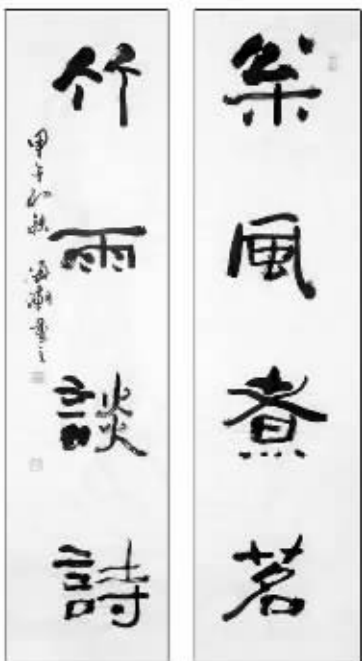 枀風煮茗
竹雨談詩
甲午初秋